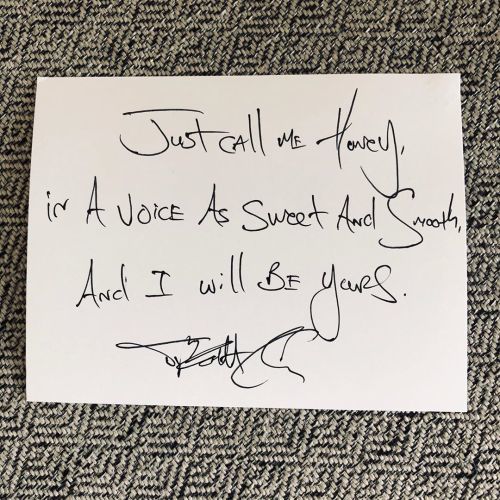 Just call me Honey,
in A voice As Sweet And Smooth,
And I will Be yours.